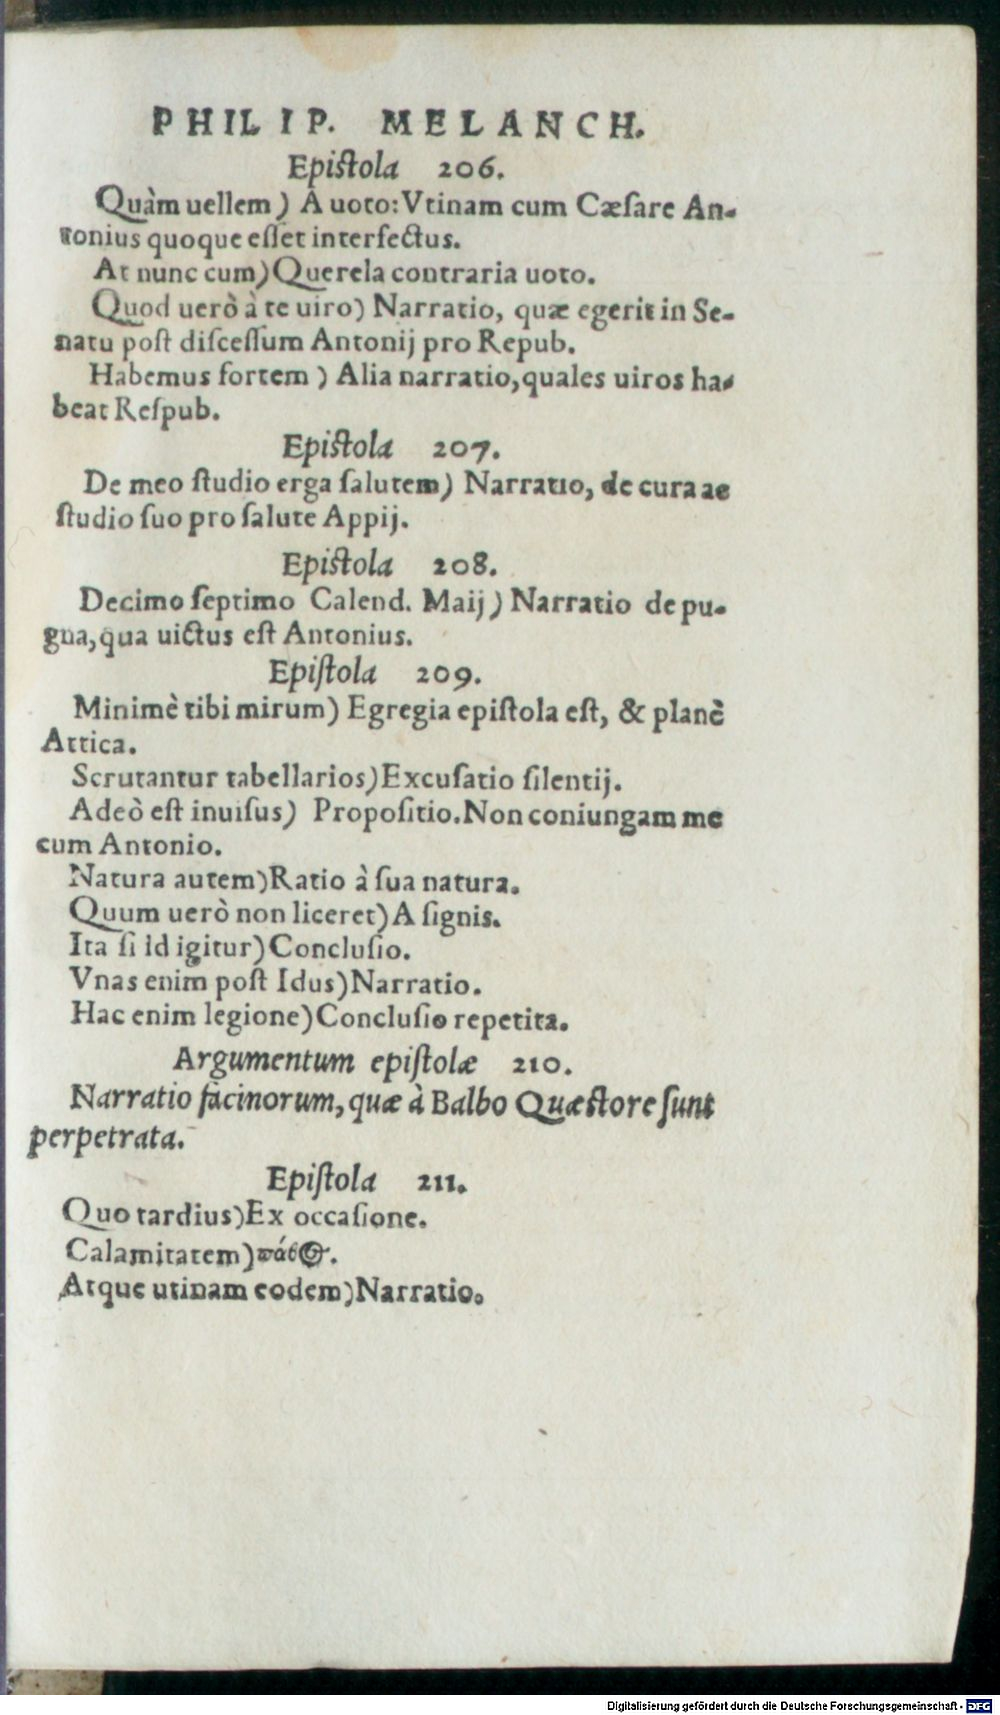 PHILIP. MELANCH.
Epiſtola 206.
Quàm uellem) A uoto: Vtinam cum Cæſare An-
tonius quoque eſſet interfectus.
At nunc cum) Querela contraria uoto.
Quod uerò à te uiro) Narratio, quæ egerit in Se-
natu poſt diſceſſum Antonij pro Repub.
Habemus fortem) Alia narratio, quales uiros ha-
beat Reſpub.
Epiſtola 207.
De meo ſtudio erga ſalutem) Narratio, de cura ac
ſtudio ſuo pro ſalute Appij.
Epiſtola 208.
Decimo ſeptimo Calend. Maij) Narratio de pu-
gna, qua uictus eſt Antonius.
Epiſtola 209.
Minimè tibi mirum) Egregia epiſtola eſt, & planè
Attica.
Scrutantur tabellarios) Excuſatio ſilentij.
Adeò eſt inuiſus) Propoſitio. Non coniungam me
cum Antonio.
Natura autem) Ratio à ſua natura.
Quum uerò non liceret) A ſignis.
Ita ſi id igitur) Concluſio.
Vnas enim poſt Idus) Narratio.
Hac enim legione) Concluſio repetita.
Argumentum epiſtolæ 210.
Narratio facinorum, quæ à Balbo Quæſtore ſunt
perpetrata.
Epiſtola 211.
Quo tardius) Ex occaſione.
Calamitatem) πάθος.
Atque utinam eodem) Narratio.
Digitalisierung gefördert durch die Deutsche Forschungsgemeinschaft - DFG